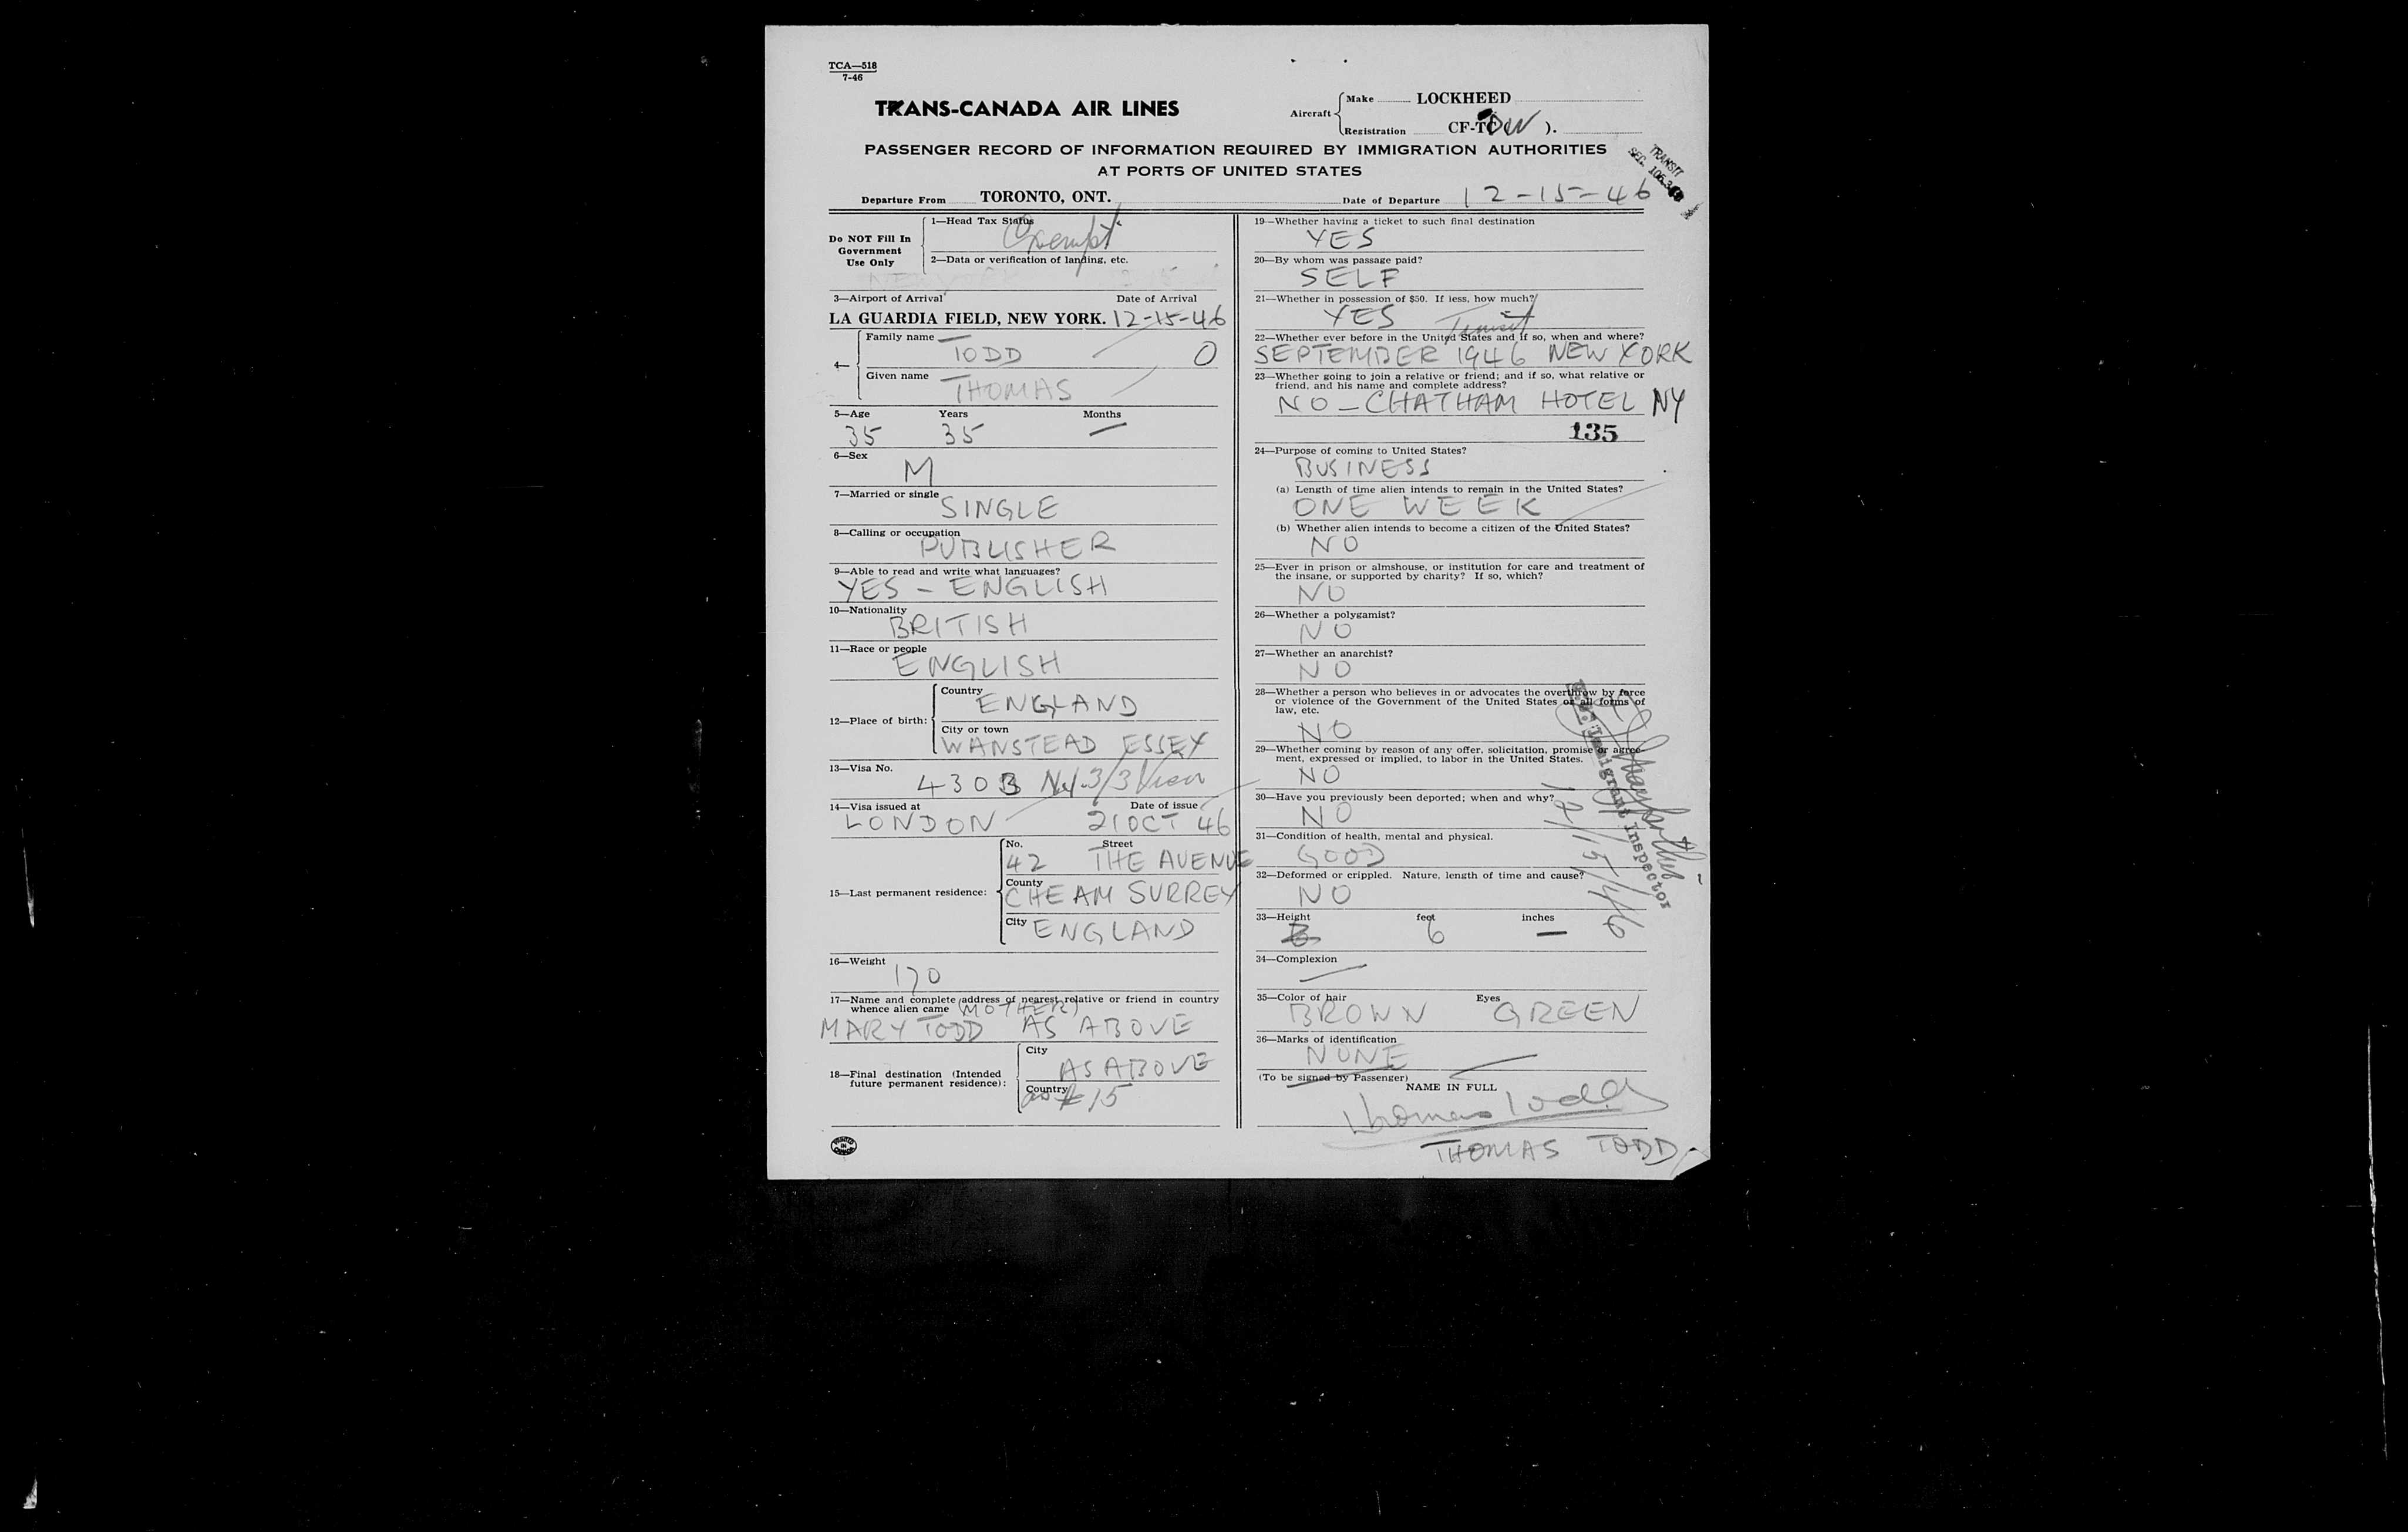 TCA—518
7-46
TRANS-CANADA AIR LINES
Aircraft
Make LOCKHEED
Registration CF-TC DW ).
PASSENGER RECORD OF INFORMATION REQUIRED BY IMMIGRATION AUTHORITIES
AT PORTS OF UNITED STATES
TRANSIT
SEC.
Departure From TORONTO, ONT. Date of Departure 12-15-46
Do NOT Fill In
Government
Use Only
1—Head Tax Status
Exempt
2—Data or verification of landing, etc.
3—Airport of Arrival Date of Arrival
LA GUARDIA FIELD, NEW YORK. 12-15-46
4—
Family name
TODD 0
Given name
THOMAS
5—Age Years Months
35 35 —
6—Sex
M
7—Married or single
SINGLE
8—Calling or occupation
PUBLISHER
9—Able to read and write what languages?
YES - ENGLISH
10—Nationality
BRITISH
11—Race or people
ENGLISH
12—Place of birth:
Country
ENGLAND
City or town
WANSTEAD ESSEX
13—Visa No.
4303 3/3 Visa
14—Visa issued at Date of issue
LONDON 21 OCT 46
15—Last permanent residence:
No. Street
42 THE AVENUE
County
CHEAM SURREY
City
ENGLAND
16—Weight
170
17—Name and complete address of nearest relative or friend in country
whence alien came (MOTHER)
MARY TODD AS ABOVE
18—Final destination (Intended
future permanent residence):
City
AS ABOVE
Country
as # 15
PRINTED IN CANADA
19—Whether having a ticket to such final destination
YES
20—By whom was passage paid?
SELF
21—Whether in possession of $50. If less, how much?
YES Transit
22—Whether ever before in the United States and if so, when and where?
SEPTEMBER 1946 NEW YORK
23—Whether going to join a relative or friend; and if so, what relative or
friend, and his name and complete address?
NO - CHATHAM HOTEL NY
135
24—Purpose of coming to United States?
BUSINESS
(a) Length of time alien intends to remain in the United States?
ONE WEEK
(b) Whether alien intends to become a citizen of the United States?
NO
25—Ever in prison or almshouse, or institution for care and treatment of
the insane, or supported by charity? If so, which?
NO
26—Whether a polygamist?
NO
27—Whether an anarchist?
NO
28—Whether a person who believes in or advocates the overthrow by force
or violence of the Government of the United States or all forms of
law, etc.
NO
29—Whether coming by reason of any offer, solicitation, promise or agree-
ment, expressed or implied, to labor in the United States.
NO
30—Have you previously been deported; when and why?
NO
31—Condition of health, mental and physical.
GOOD
32—Deformed or crippled. Nature, length of time and cause?
NO
Immigrant Inspector
12/15/46
33—Height feet inches
6 —
34—Complexion
—
35—Color of hair Eyes
BROWN GREEN
36—Marks of identification
NONE
(To be signed by Passenger)
NAME IN FULL
Thomas Todd
THOMAS TODD